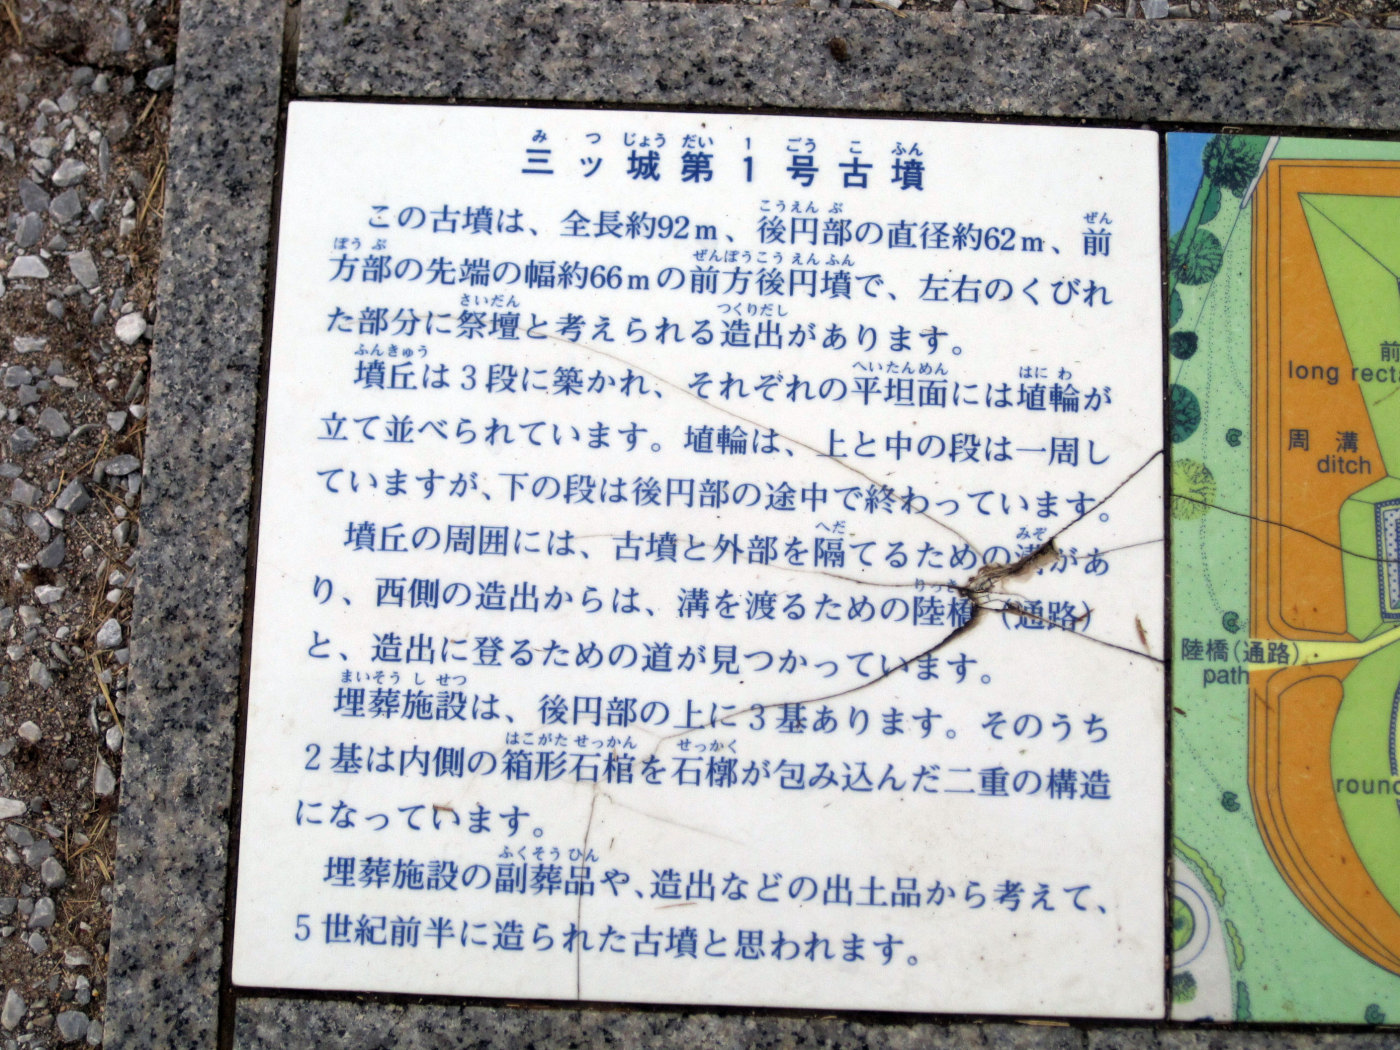 三ッ城第1号古墳
この古墳は、全長約92m、後円部の直径約62m、前
方部の先端の幅約66mの前方後円墳で、左右のくびれ
た部分に祭壇と考えられる造出があります。
墳丘は3段に築かれ、それぞれの平坦面には埴輪が
立て並べられています。埴輪は、上と中の段は一周し
ていますが、下の段は後円部の途中で終わっています。
墳丘の周囲には、古墳と外部を隔てるための溝があ
り、西側の造出からは、溝を渡るための陸橋（通路）
と、造出に登るための道が見つかっています。
埋葬施設は、後円部の上に3基あります。そのうち
2基は内側の箱形石棺を石槨が包み込んだ二重の構造
になっています。
埋葬施設の副葬品や、造出などの出土品から考えて、
5世紀前半に造られた古墳と思われます。
前
long recta
周溝
ditch
陸橋（通路）
path
round